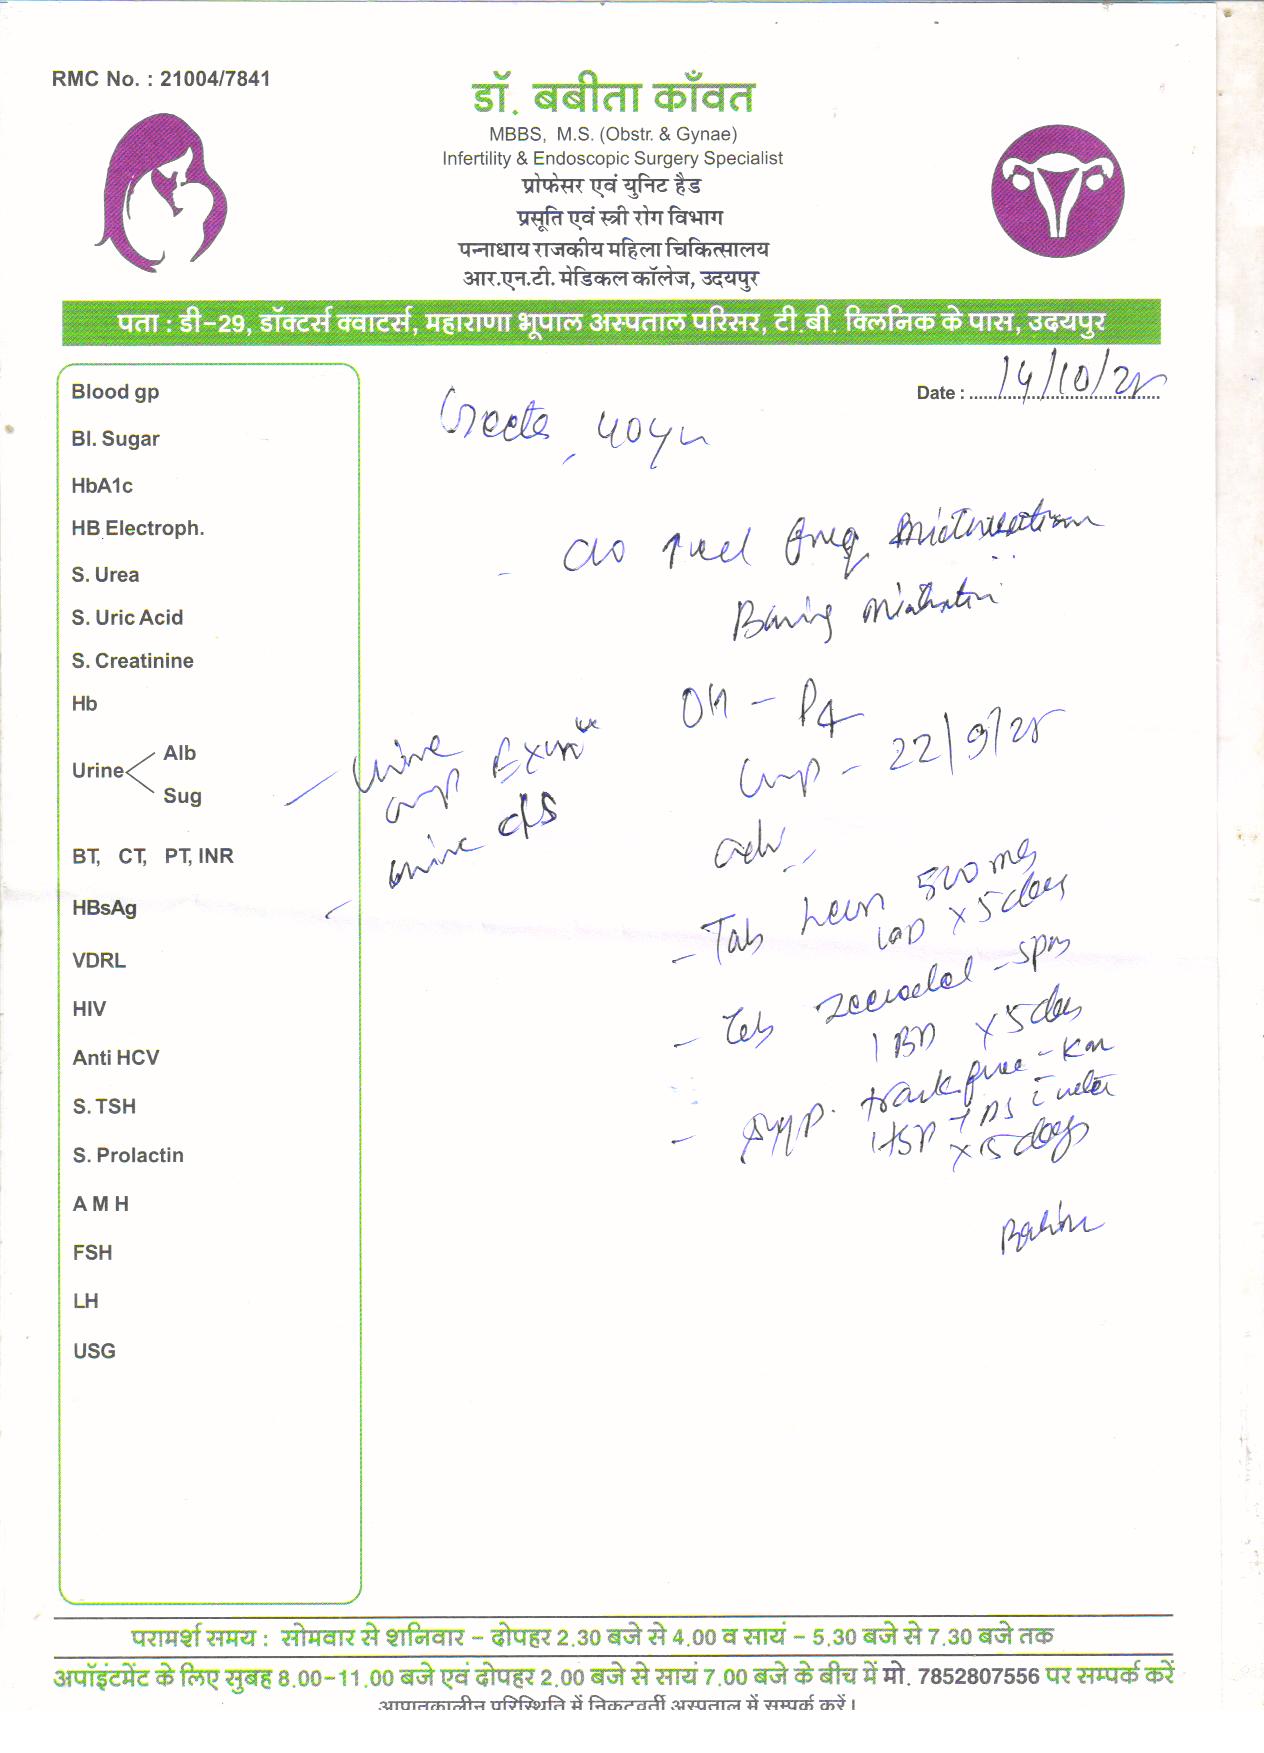 RMC No. : 21004/7841
डॉ. बबीता काँवत
MBBS, M.S. (Obstr. & Gynae)
Infertility & Endoscopic Surgery Specialist
प्रोफेसर एवं युनिट हैड
प्रसूति एवं स्त्री रोग विभाग
पन्नाधाय राजकीय महिला चिकित्सालय
आर.एन.टी. मेडिकल कॉलेज, उदयपुर
पता : डी-29, डॉक्टर्स क्वाटर्स, महाराणा भूपाल अस्पताल परिसर, टी.बी. क्लिनिक के पास, उदयपुर
Date : 14/10/25
Geeta, 40yr
c/o freq micturition
Burning micturition
OH - P4
Lmp - 22/9/25
Urine
cmp Exmn
urine c/s
Adv
- Tab 500 mg
x 5 days
- Tab - spas
1 BD x 5 days
- Syp.
x 15 days
Blood gp
Bl. Sugar
HbA1c
HB Electroph.
S. Urea
S. Uric Acid
S. Creatinine
Hb
Urine Alb
Sug
BT, CT, PT, INR
HBsAg
VDRL
HIV
Anti HCV
S. TSH
S. Prolactin
A M H
FSH
LH
USG
परामर्श समय : सोमवार से शनिवार - दोपहर 2.30 बजे से 4.00 व सायं - 5.30 बजे से 7.30 बजे तक
अपॉइंटमेंट के लिए सुबह 8.00-11.00 बजे एवं दोपहर 2.00 बजे से सायं 7.00 बजे के बीच में मो. 7852807556 पर सम्पर्क करें
आपातकालीन परिस्थिति में निकटवर्ती अस्पताल में सम्पर्क करें।